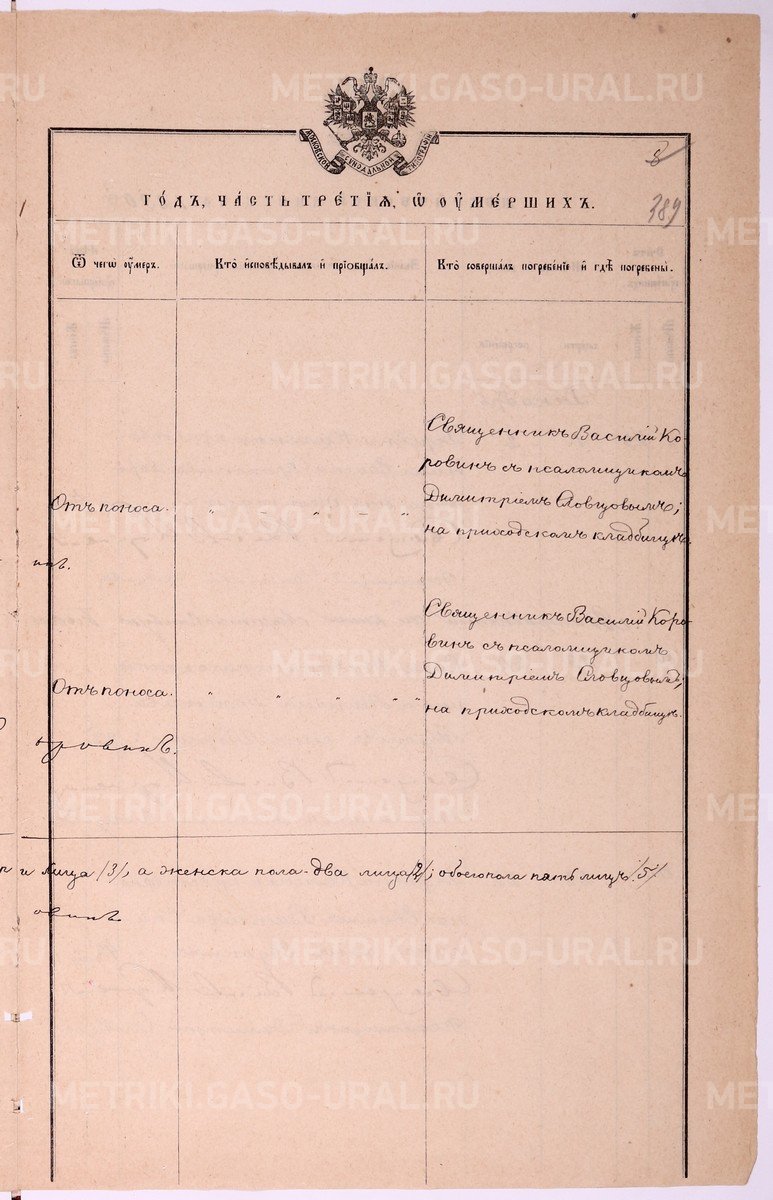 METRIKI.GASO-URAL.RU
МОСКОВСКОЙ СѴНОДАЛЬНОЙ ТИПОГРАФІИ
8
389
ГО́ДЪ, ЧА́СТЬ ТРЕ́ТІѦ, Ѡ҆ ОУ҆МЕ́РШИХЪ.
Ѿ чегѡ̀ оу҆́меръ.
Кто̀ и҆сповѣ́дывалъ и҆ прїѡбща́лъ.
Кто̀ соверша́лъ погребе́нїе и҆ гдѣ̀ погребены̀.
Священникъ Василій Ко-
ровинъ съ псаломщикомъ
Отъ поноса. " " " " "
Димитріемъ Словцовымъ;
на приходскомъ кладбищѣ.
инъ.
Священникъ Василій Коро-
винъ съ псаломщикомъ
Отъ поноса. " " " " "
Димитріемъ Словцовымъ;
на приходскомъ кладбищѣ.
оровинъ.
и лица /3/, а женска пола два лица /2/; обоего пола пять лицъ /5/
овинъ